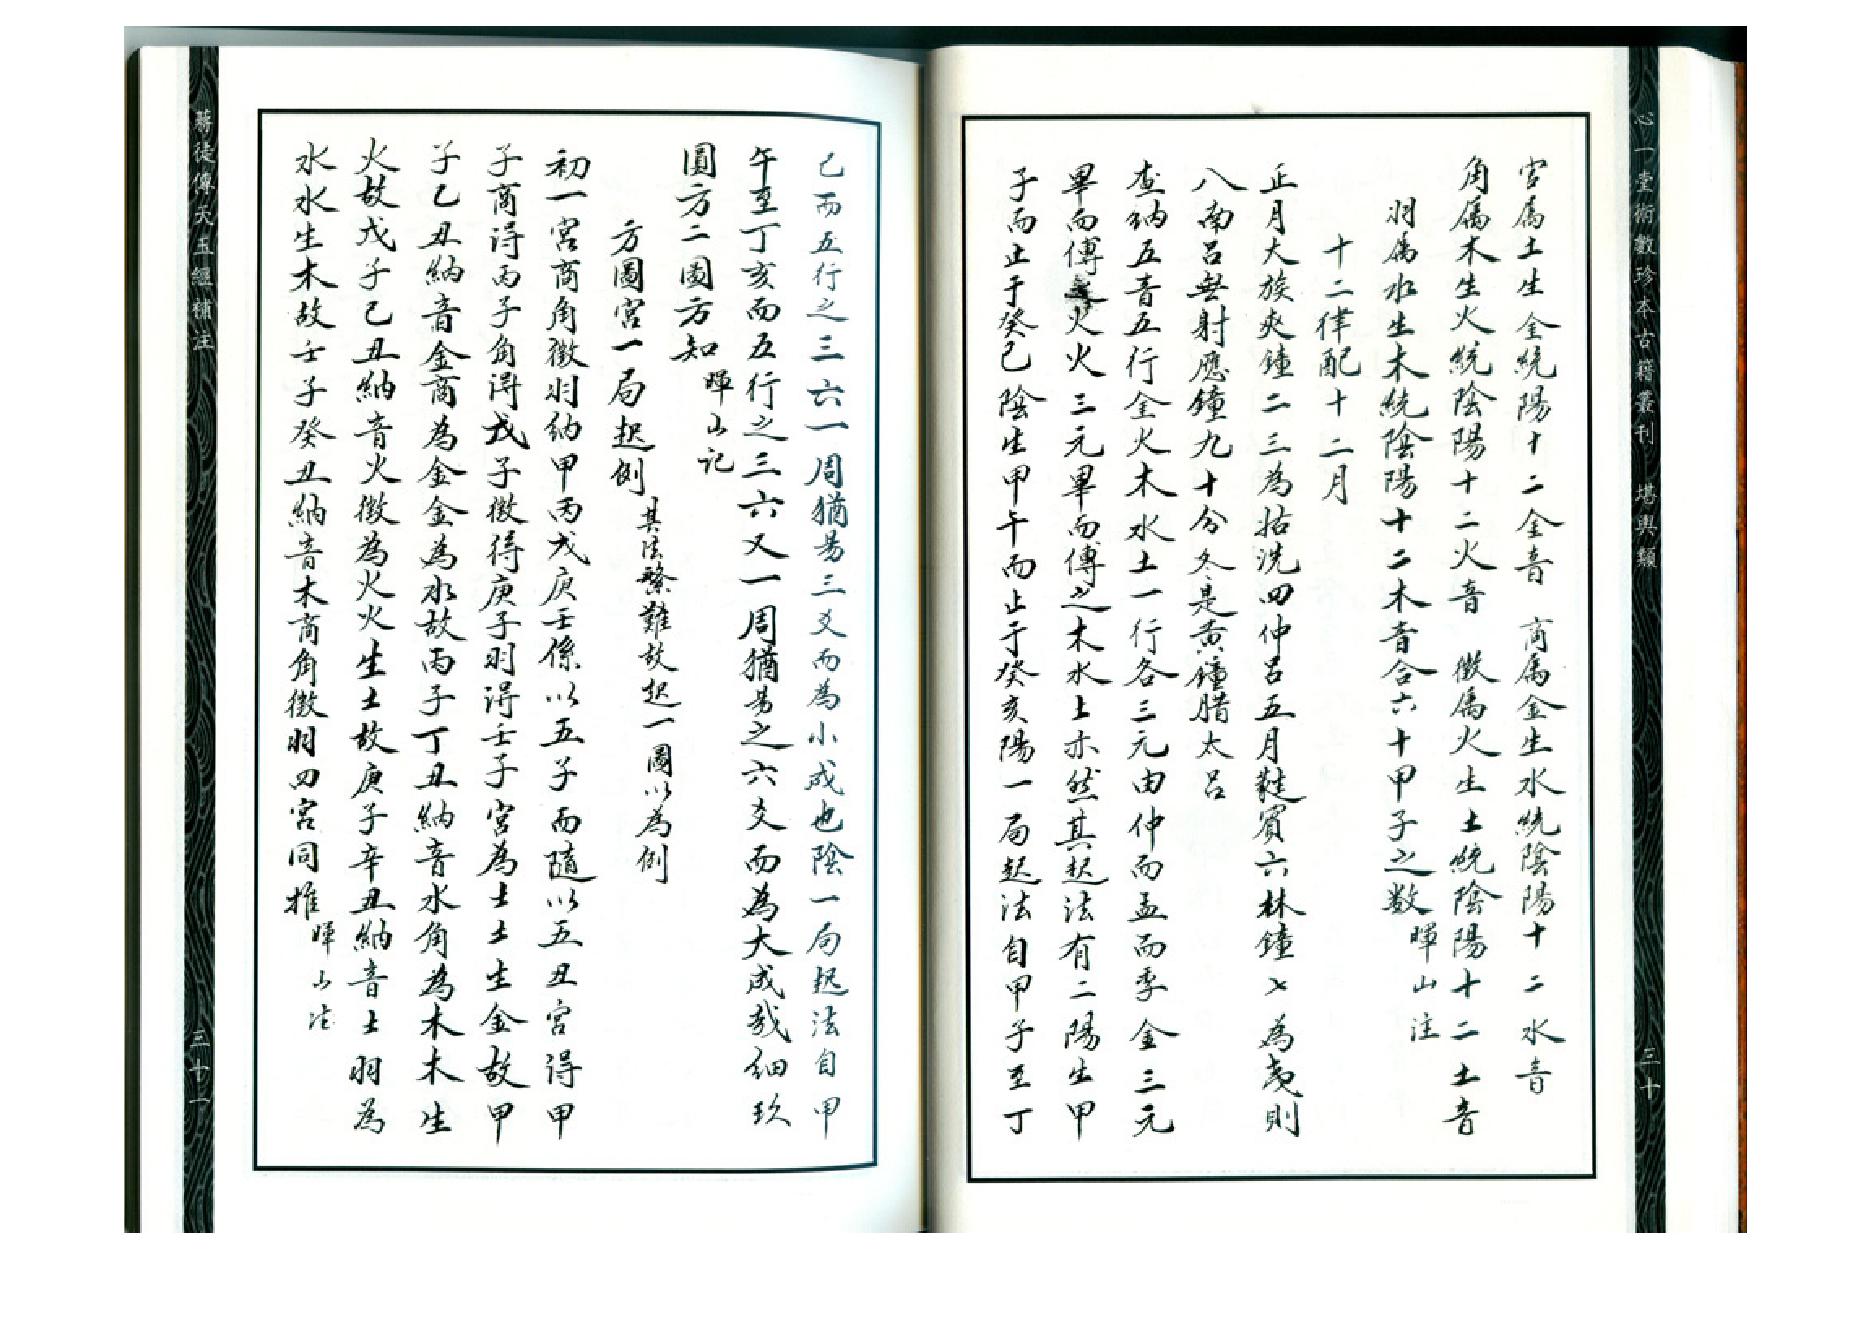 心一堂術數珍本古籍叢刊 堪輿類
三十
宮属土生金統陽十二金音 商属金生水統陰陽十二水音
角属木生火統陰陽十二火音 徵属火生土統陰陽十二土音
羽属水生木統陰陽十二木音合六十甲子之数 暉山注
十二律配十二月
正月大簇夾鐘二三為姑洗四仲呂五月蕤賓六林鐘七為夷則
八南呂無射應鐘九十分冬是黃鐘腊太呂
查納五音五行金火木水土一行各三元由仲而孟而季金三元
畢而傳火火三元畢而傳之木水土亦然其起法有二陽生甲
子而止于癸巳陰生甲午而止于癸亥陽一局起法自甲子至丁
巳而五行之三六一周猶易三爻而為小成也陰一局起法自甲
午至丁亥而五行之三六又一周猶易之六爻而為大成哉細玖
圓方二圖方知 暉山記
方圖宮一局起例 其法繁難故起一圖以為例
初一宮商角徵羽納甲丙戊庚壬係以五子而隨以五丑宮得甲
子商得丙子角得戊子徵得庚子羽得壬子宮為土土生金故甲
子乙丑納音金商為金金為水故丙子丁丑納音水角為木木生
火故戊子己丑納音火徵為火火生土故庚子辛丑納音土羽為
水水生木故壬子癸丑納音木商角徵羽四宮同推 暉山注
蔣徒傳天玉經補注
三十一